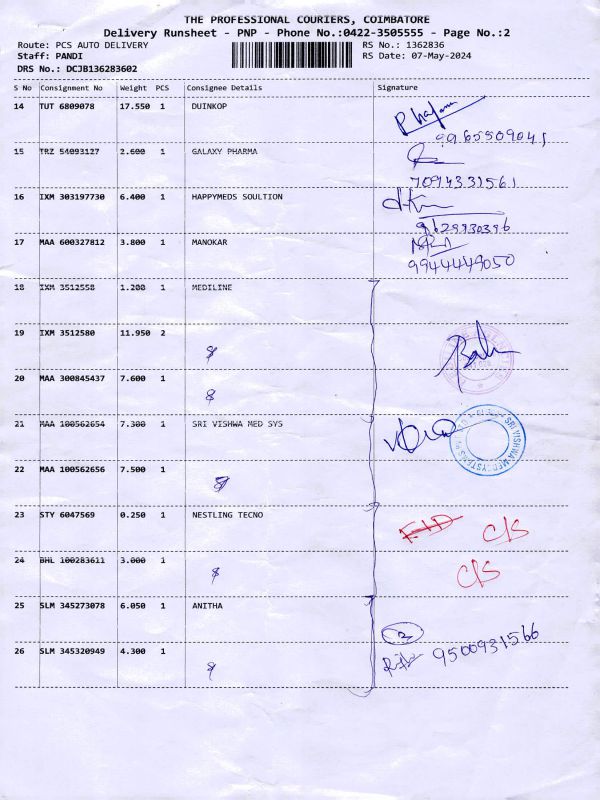 THE PROFESSIONAL COURIERS, COIMBATORE
Delivery Runsheet - PNP - Phone No.:0422-3505555 - Page No.:2
Route: PCS AUTO DELIVERY RS No.: 1362836
Staff: PANDI RS Date: 07-May-2024
DRS No.: DCJB136283602
S No Consignment No Weight PCS Consignee Details Signature
14 TUT 6809078 17.550 1 DUINKOP
9965509041
15 TRZ 54093127 2.600 1 GALAXY PHARMA
7094331561
16 IXM 303197730 6.400 1 HAPPYMEDS SOULTION
9629930396
17 MAA 600327812 3.800 1 MANOKAR
9944449050
18 IXM 3512558 1.200 1 MEDILINE
19 IXM 3512580 11.950 2
20 MAA 300845437 7.600 1
21 MAA 100562654 7.300 1 SRI VISHWA MED SYS
SRI VISHWA MED SYSTEMS
22 MAA 100562656 7.500 1
23 STY 6047569 0.250 1 NESTLING TECNO
C/S
24 BHL 100283611 3.000 1
C/S
25 SLM 345273078 6.050 1 ANITHA
2
26 SLM 345320949 4.300 1
9500931566